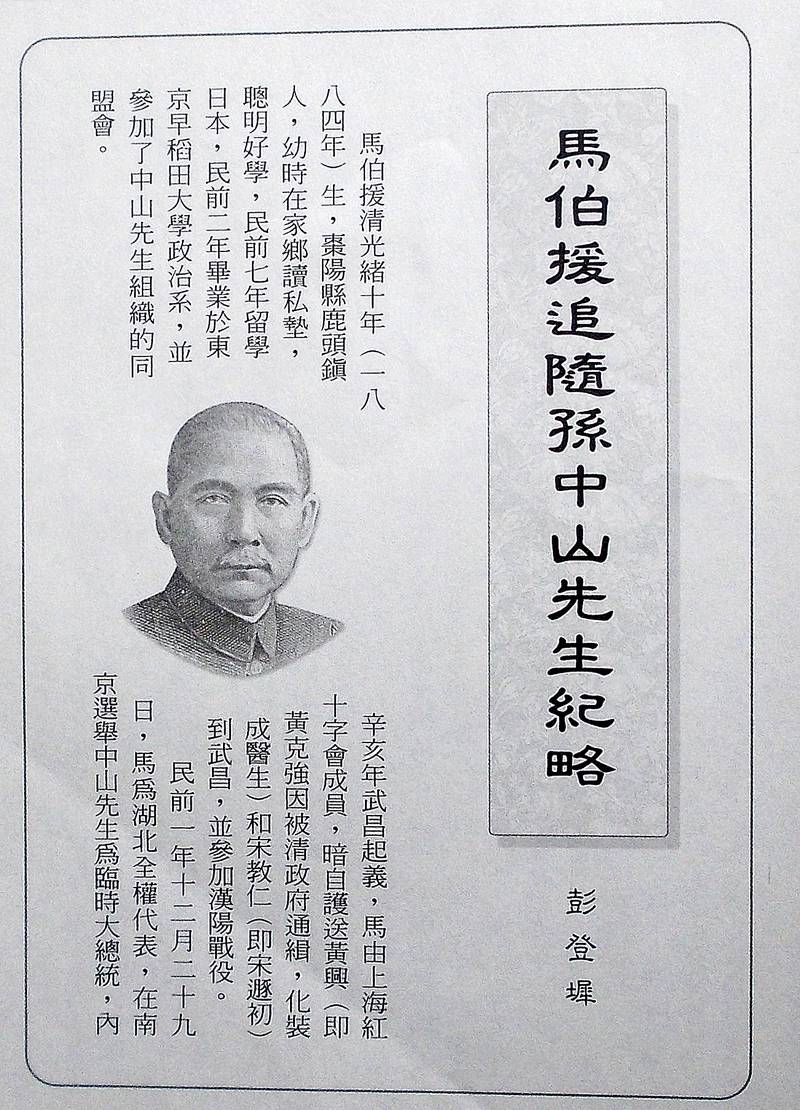 馬伯援追隨孫中山先生紀略
彭登墀
馬伯援清光緒十年（一八
八四年）生，棗陽縣鹿頭鎮
人，幼時在家鄉讀私塾，
聰明好學，民前七年留學
日本，民前二年畢業於東
京早稻田大學政治系，並
參加了中山先生組織的同
盟會。
辛亥年武昌起義，馬由上海紅
十字會成員，暗自護送黃興（即
黃克強因被清政府通緝，化裝
成醫生）和宋教仁（即宋遯初）
到武昌，並參加漢陽戰役。
民前一年十二月二十九
日，馬爲湖北全權代表，在南
京選舉中山先生爲臨時大總統，內